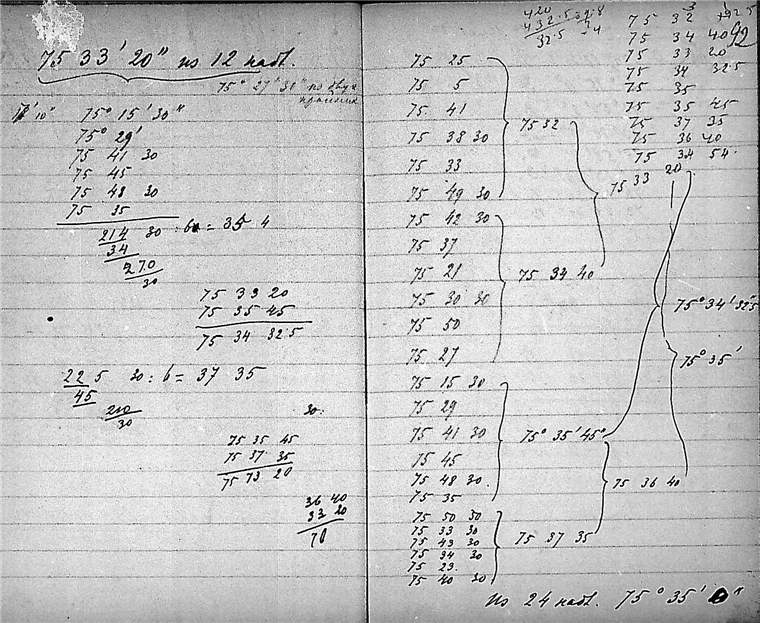 75 33' 20" из 12 набл.
75° 27' 30" по двум
10" 75° 15' 30"
75° 29'
75 41 30
75 45
75 48 30
75 35
214 30 : 6 = 35 4
34
270
30
75 33 20
75 35 45
75 34 32.5
225 30 : 6 = 37 35
45
210
30
30
75 35 45
75 37 35
75 73 20
36 40
33 20
70
420
432.5
32.5
92
75 32
75 34 40
75 33 20
75 34 32.5
75 35
75 35 45
75 37 35
75 36 40
75 34 54
75 25
75 5
75 41
75 38 30
75 33
75 49 30
75 32
75 42 30
75 37
75 21
75 30 30
75 50
75 27
75 34 40
75 33 20
75 15 30
75 29
75 41 30
75 45
75 48 30
75 35
75° 35' 45"
75 50 50
75 33 30
75 43 30
75 34 30
75 23
75 40 30
75 37 35
75 36 40
75° 34' 32"5
75° 35'
Из 24 набл. 75° 35' 0"